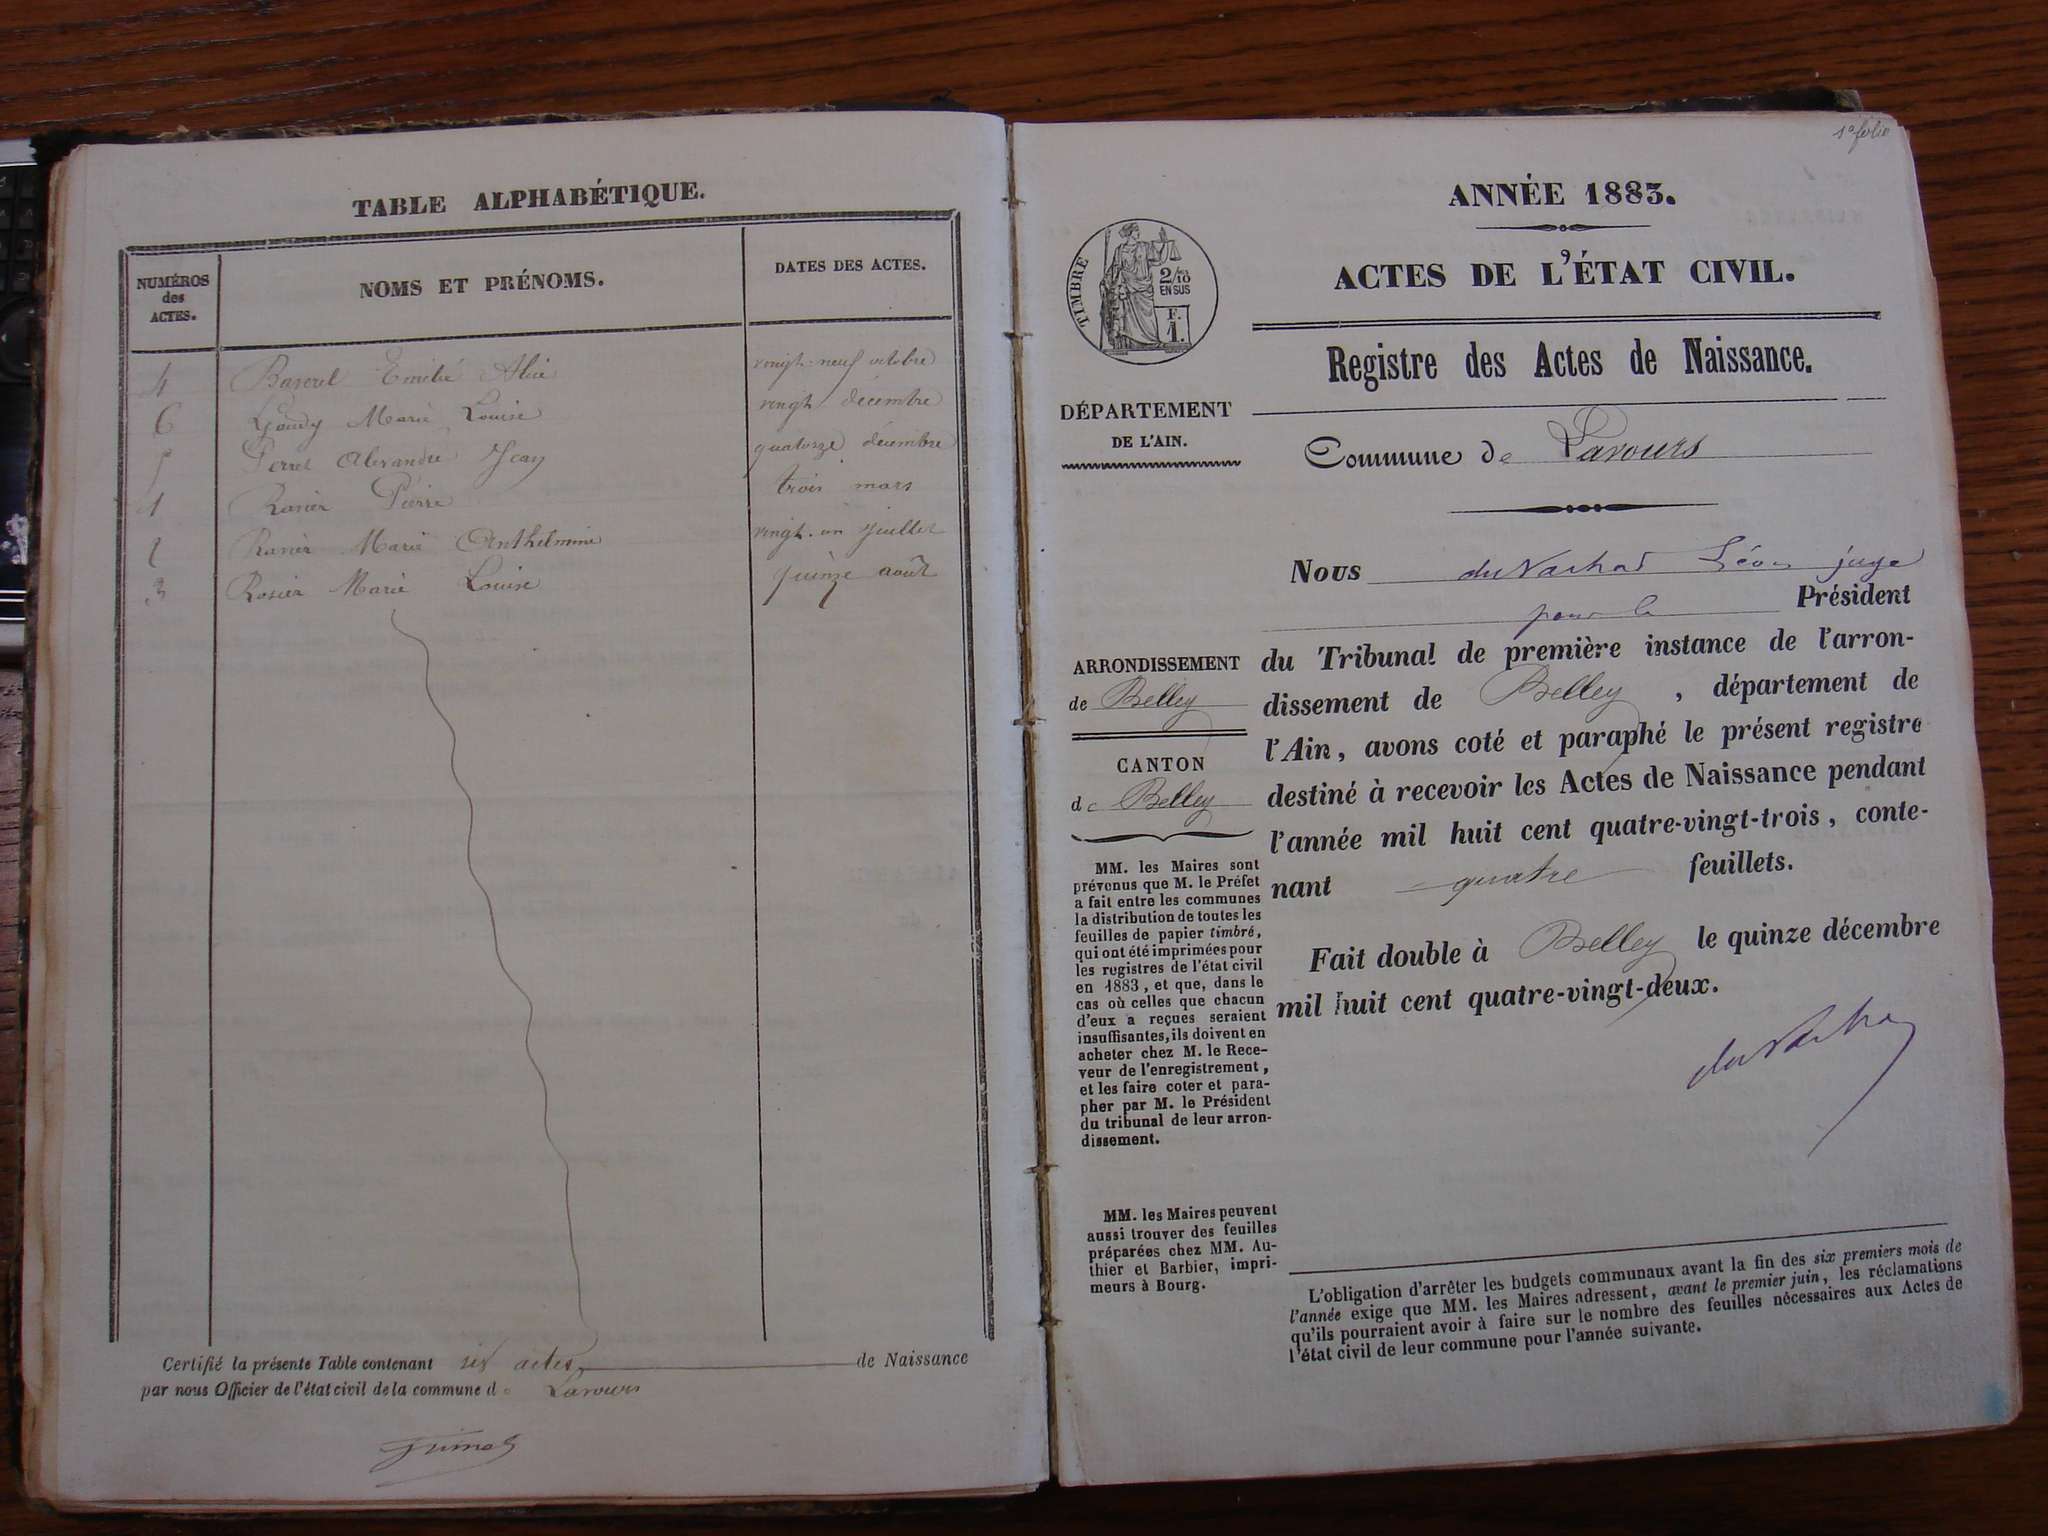 TABLE ALPHABÉTIQUE.
NUMÉROS des ACTES.
NOMS ET PRÉNOMS.
DATES DES ACTES.
4 Emélie Alice vingt-neuf octobre
6 Goudy Marie Louise vingt décembre
5 Perret Alexandre Jean quatorze décembre
1 Pierre trois mars
2 Marie Anthelmine vingt-un juillet
3 Rosier Marie Louise quinze août
Certifié la présente Table contenant six actes de Naissance
par nous Officier de l'état civil de la commune de Lavours
1er folio
ANNÉE 1883.
ACTES DE L'ÉTAT CIVIL.
TIMBRE
2/10
EN SUS
F.
1.
Registre des Actes de Naissance.
DÉPARTEMENT
DE L'AIN.
Commune de Lavours
Nous Léon juge
pour le Président
ARRONDISSEMENT
de Belley
CANTON
de Belley
du Tribunal de première instance de l'arron-
dissement de Belley, département de
l'Ain, avons coté et paraphé le présent registre
destiné à recevoir les Actes de Naissance pendant
l'année mil huit cent quatre-vingt-trois, conte-
nant quatre feuillets.
Fait double à Belley le quinze décembre
mil huit cent quatre-vingt-deux.
MM. les Maires sont
prévenus que M. le Préfet
a fait entre les communes
la distribution de toutes les
feuilles de papier timbré,
qui ont été imprimées pour
les registres de l'état civil
en 1883, et que, dans le
cas où celles que chacun
d'eux a reçues seraient
insuffisantes, ils doivent en
acheter chez M. le Rece-
veur de l'enregistrement,
et les faire coter et para-
pher par M. le Président
du tribunal de leur arron-
dissement.
MM. les Maires peuvent
aussi trouver des feuilles
préparées chez MM. Au-
thier et Barbier, impri-
meurs à Bourg.
L'obligation d'arrêter les budgets communaux avant la fin des six premiers mois de
l'année exige que MM. les Maires adressent, avant le premier juin, les réclamations
qu'ils pourraient avoir à faire sur le nombre des feuilles nécessaires aux Actes de
l'état civil de leur commune pour l'année suivante.